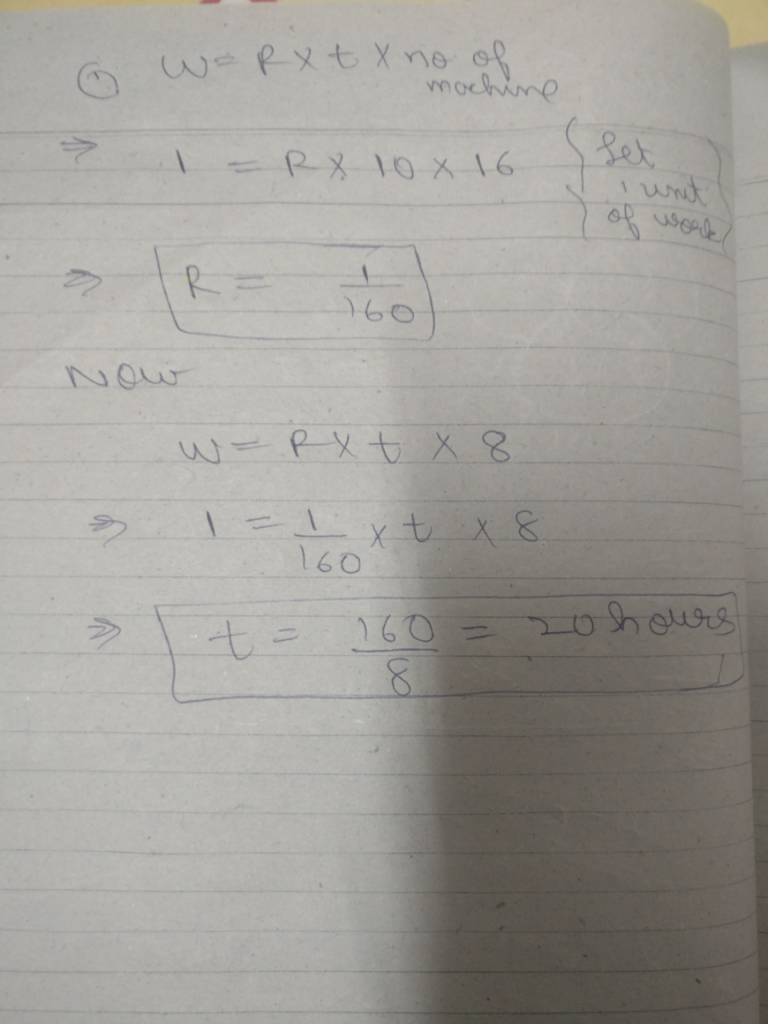 ① W = R x t x no of
machine
⇒ 1 = R x 10 x 16 { Let
1 unit
of work }
⇒ R = 1/160
Now
W = R x t x 8
⇒ 1 = 1/160 x t x 8
⇒ t = 160/8 = 20 hours